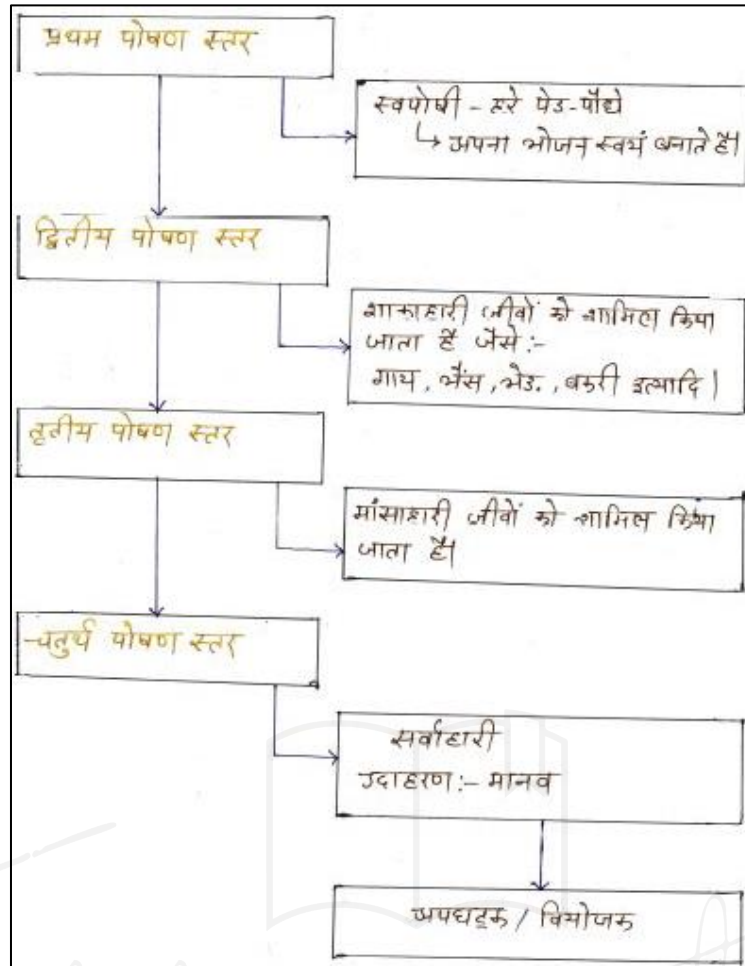 प्रथम पोषण स्तर
स्वपोषी - हरे पेड-पौधे
↳ अपना भोजन स्वयं बनाते है।
द्वितीय पोषण स्तर
शाकाहारी जीवों को शामिल किया
जाता है जैसे:-
गाय, भैंस, भेड., बकरी इत्यादि।
तृतीय पोषण स्तर
मांसाहारी जीवों को शामिल किया
जाता है।
चतुर्थ पोषण स्तर
सर्वाहारी
उदाहरण:- मानव
अपघट्क / वियोजक